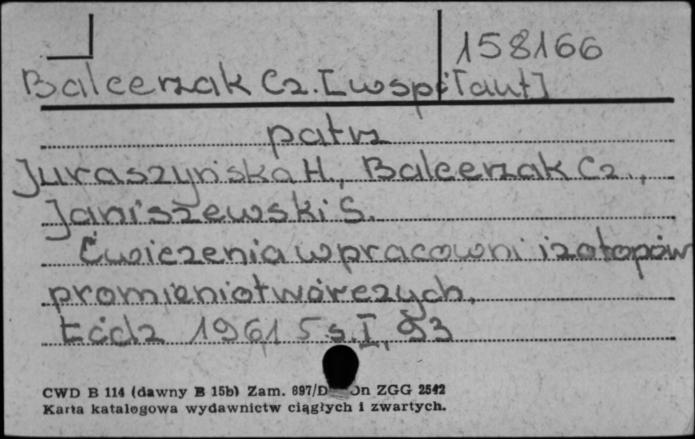 158166
Balcerzak Cz. [współaut]
patrz
Juraszyńska H., Balcerzak Cz.,
Janiszewski S.
Ćwiczenia w pracowni izotopów
promieniotwórczych.
Łódź 1961 5 s. I, 93
CWD B 114 (dawny B 15b) Zam. 697/D ZGG 2542
Karta katalogowa wydawnictw ciągłych i zwartych.